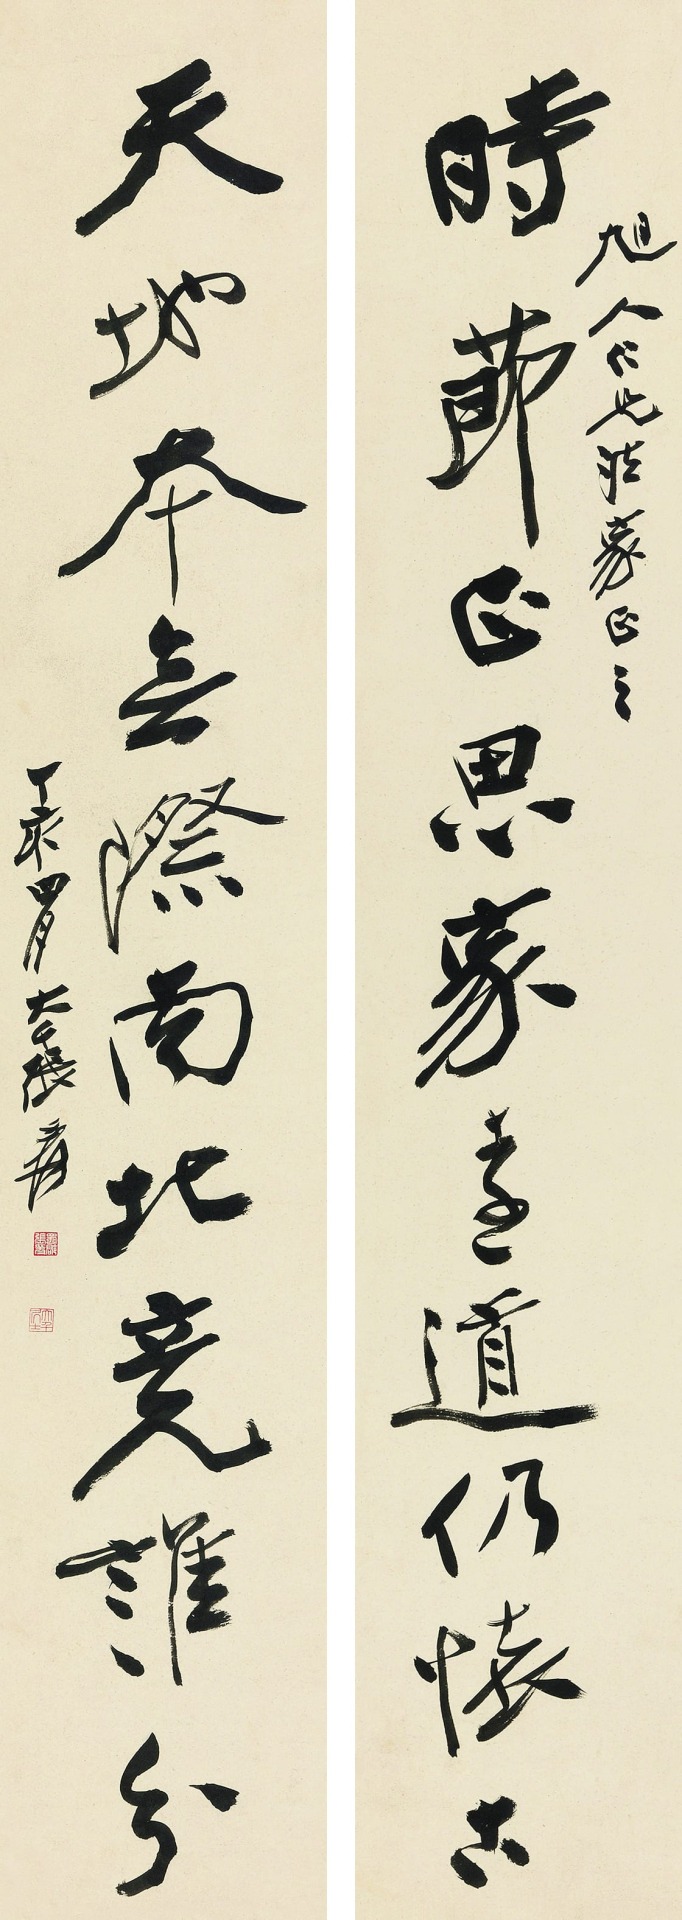 旭人仁兄法家正之
時節正思家遠道仍懷古
天地本無際南北竟誰分
丁亥四月大千張爰